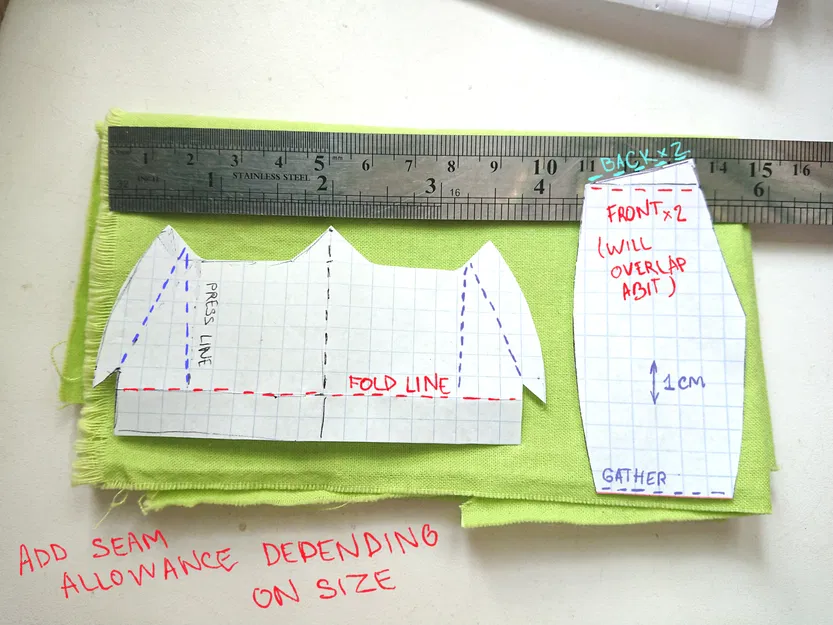 mm 1 2 3 4 5 mm 6 7 8 9 10 11 12 13 14 15 16
32 INCH 1 STAINLESS STEEL 2 3 16 4 6
BACK x 2
FRONT x 2
(WILL
OVERLAP
ABIT)
PRESS LINE
FOLD LINE
1CM
GATHER
ADD SEAM
ALLOWANCE DEPENDING
ON SIZE